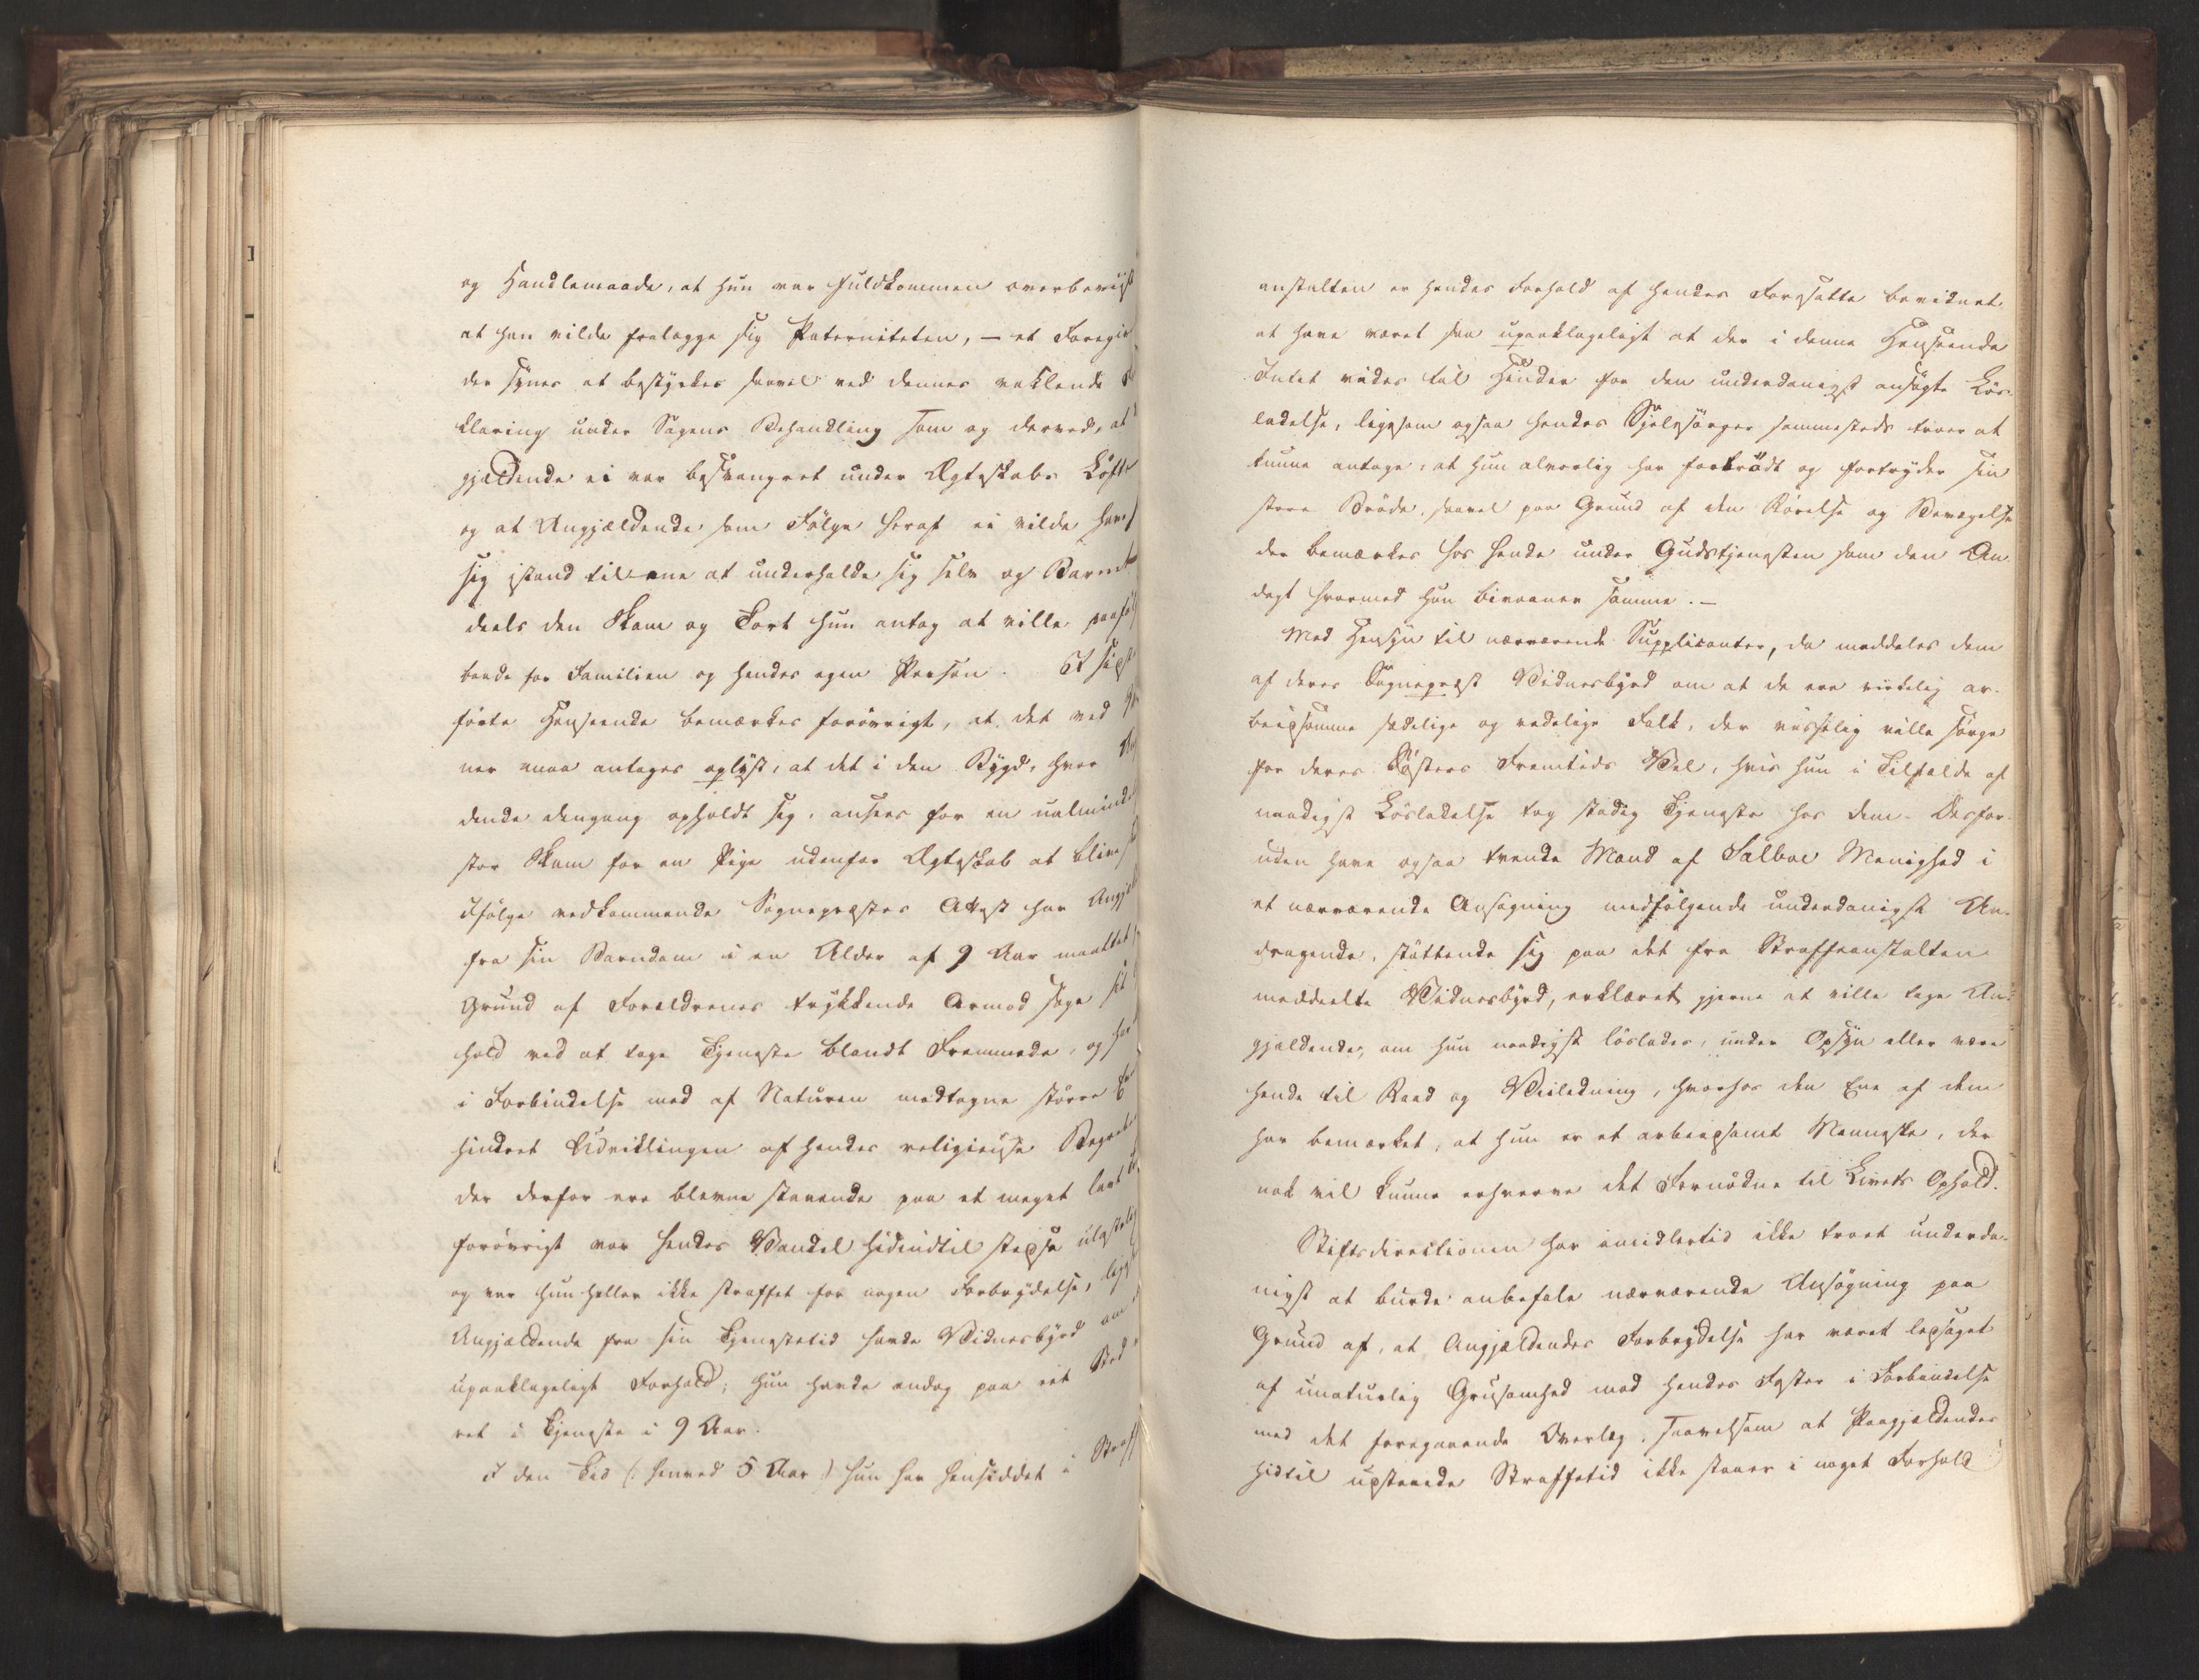 og Handlemaade, at hun var fuldkommen overbeviist
at han vilde fralægge sig Paterniteten, — et Foregiv
der synes at bestyrkes saavel ved dennes vaklende
klaring under Sagens Behandling som og derved, at
gjældende ei var besvangret under Ægteskabs Löfte
og at Angjældende som Fölge heraf ei vilde have
sig istand til ene at underholde sig selv og Barnet
deels den Skam og Tort hun antog at ville paaföl
baade for Familien og hendes egen Person. I sidst
förte Henseende bemærkes forövrigt, at det ved
ner maa antages oplyst, at det i den Bygd, hvor
dende dengang opholdt sig, ansees for en ualmindel
stor Skam for en Pige udenfor Ægteskab at blive
Ifölge vedkommende Sognepræstes Attest har Angjæl
fra sin Barndom i en Alder af 9 Aar maattet
Grund af Forældrenes trykkende Armod söge sit
hold ved at tage Tjeneste blandt Fremmede, og har
i Forbindelse med af Naturen modtagne större
hindret Udviklingen af hendes religieuse Begreber
der derfor ere blevne staaende paa et meget lavt
forövrigt var hendes Vandel hidindtil stedse ulastelig
og var hun heller ikke straffet for nogen Forbrydelse, lige
Angjældende fra sin Tjenestetid havde Vidnesbyrd om
upaaklageligt Forhold; hun havde endog paa eet Sted
ret i Tjeneste i 9 Aar.
I den Tid (: henved 5 Aar) hun har hensiddet i Straff
anstalten er hendes Forhold af hendes Foresatte bevidnet
at have været saa upaaklageligt at der i denne Henseende
Intet vides til Hinder for den underdanigst ansögte Lös-
ladelse, ligesom ogsaa hendes Sjelesörger sammesteds troer at
kunne antage, at hun alvorlig har fortrödt og fortryder sin
store Bröde, saavel paa Grund af den Rörelse og Bevægelse
der bemærkes hos hende under Gudstjenesten som den An-
dagt hvormed hun bivaaner samme. —
Med Hensyn til nærværende Supplicanter, da meddeles dem
af deres Sognepræst Vidnesbyrd om at de ere virkelig ar-
beidsomme sædelige og redelige Folk, der visselig ville sörge
for deres Sösters Fremtids Vel, hvis hun i Tilfælde af
naadigst Lösladelse tog stadig Tjeneste hos dem. Desfor-
uden have ogsaa trende Mænd af Sælboe Menighed i
et nærværende Ansögning medfölgende underdanigst An-
dragende, stöttende sig paa det fra Straffeanstalten
meddeelte Vidnesbyrd, erklæret gjerne at ville tage An-
gjældende, om hun naadigst löslades, under Opsyn eller være
hende til Raad og Veiledning, hvorhos den Ene af dem
har bemærket, at hun er et arbeidsomt Menneske, der
nok vil kunne erhverve det Fornödne til Livets Ophold.
Stiftsdirectionen har imidlertid ikke troet underda-
nigst at burde anbefale nærværende Ansögning paa
Grund af, at Angjældendes Forbrydelse har været ledsaget
af unaturlig Grusomhed mod hendes Foster i Forbindelse
med det foregaaende Overlæg, saavelsom at Paagjældendes
hidtil udstaaede Straffetid ikke staaer i noget Forhold